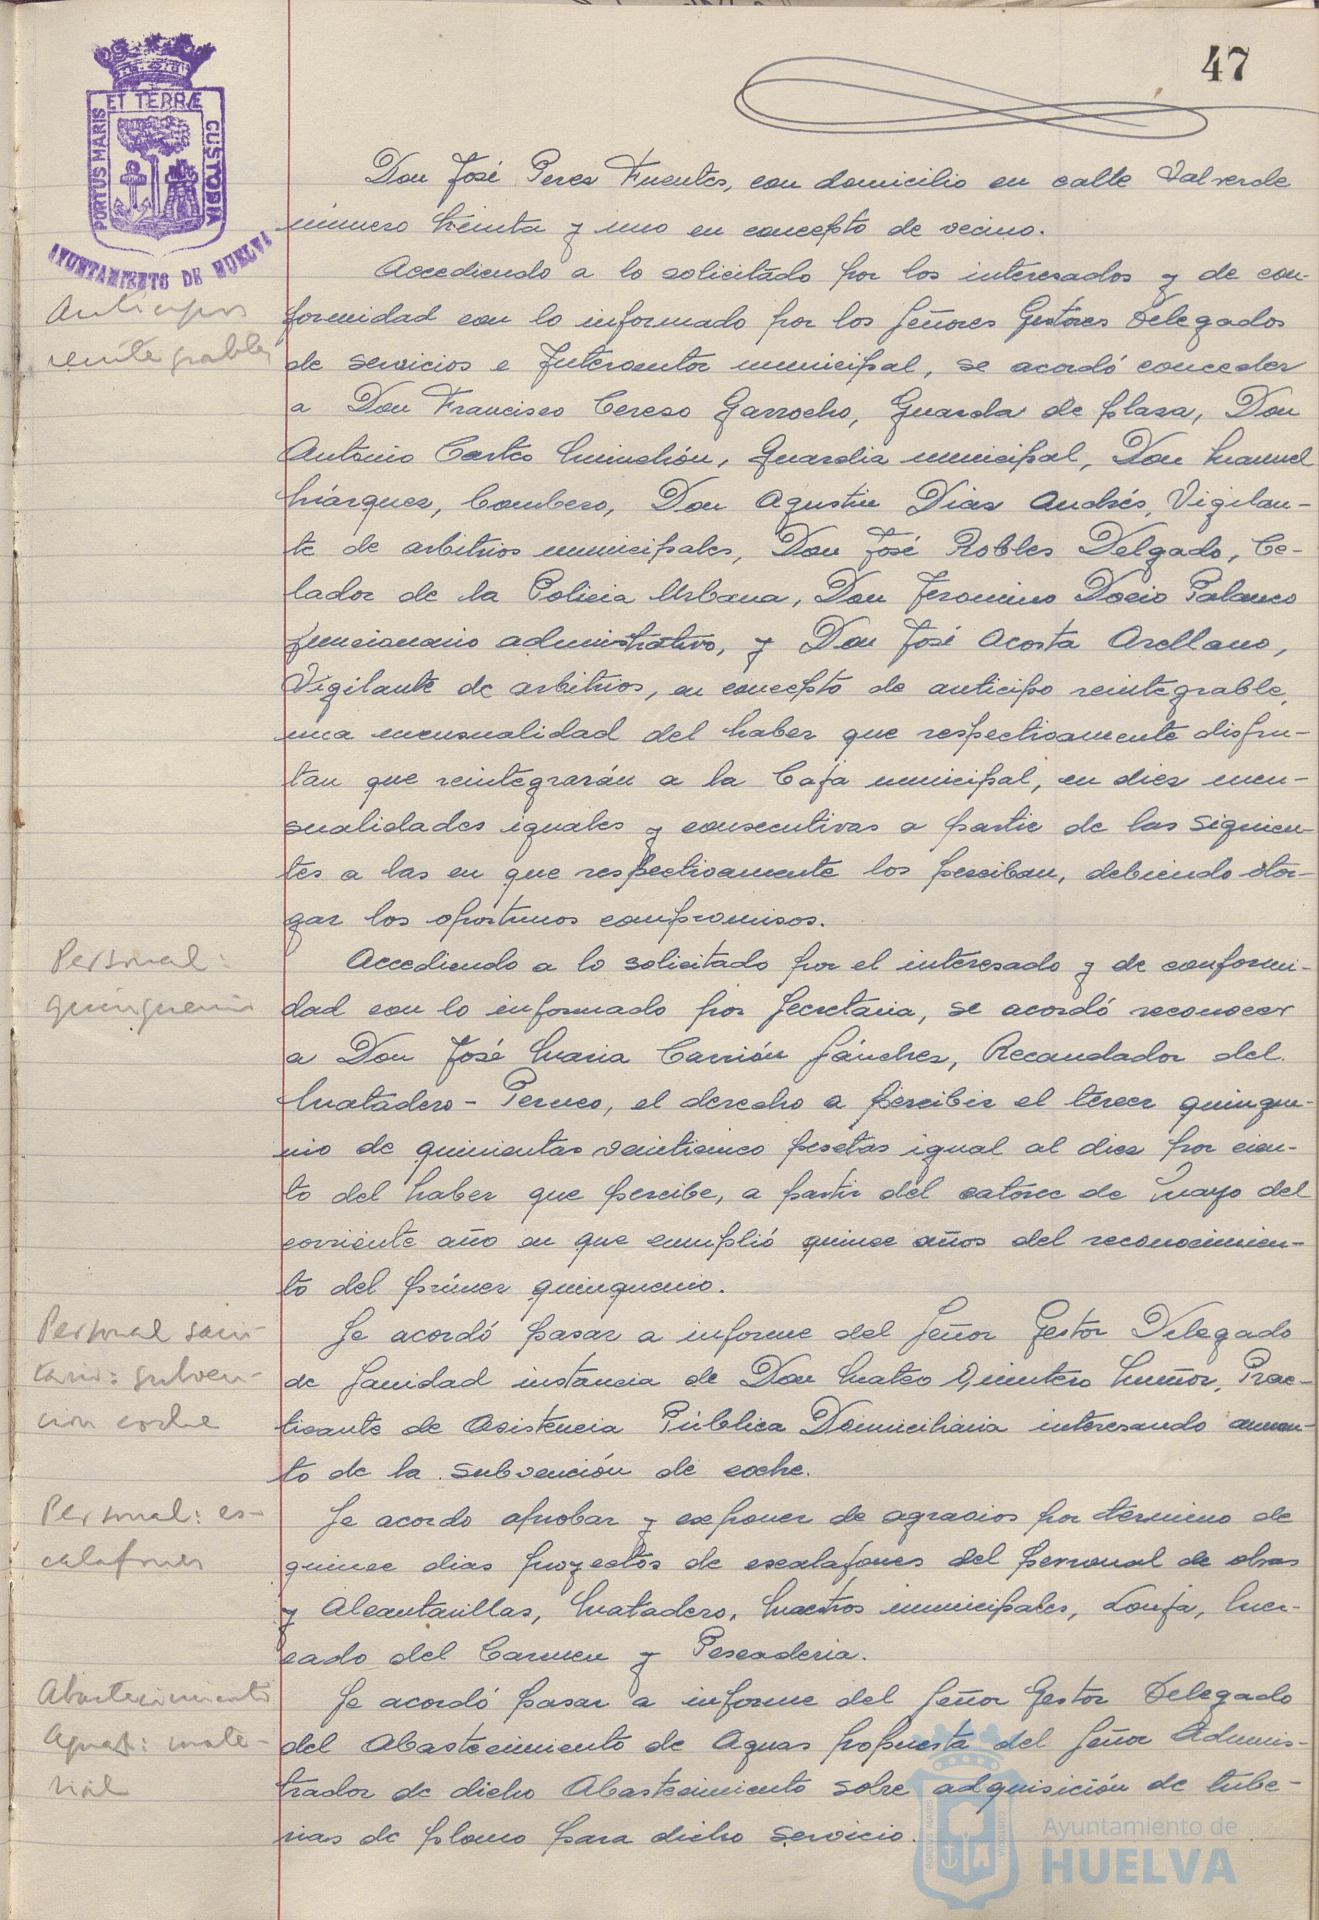 47
PORTUS MARIS ET TERRÆ CUSTODIA
AYUNTAMIENTO DE HUELVA
Don José Peres Fuentes, con domicilio en calle Valverde
número treinta y uno en concepto de vecino.
Anticipos
reintegrables
Accediendo a lo solicitado por los interesados y de con-
formidad con lo informado por los Señores Gestores Delegados
de servicios e Interventor municipal, se acordó conceder
a Don Francisco Cereso Garrocho, Guarda de plasa, Don
Antonio Cartes Muinchón, Guardia municipal, Don Manuel
Márques, Bombero, Don Agustin Dias Andrés, Vigilan-
te de arbitrios municipales, Don José Robles Delgado, Ce-
lador de la Policia Urbana, Don Jeronimo Docio Palanco
funcionario administrativo, y Don José Acosta Arellano,
Vigilante de arbitrios, en concepto de anticipo reintegrable,
una mensualidad del haber que respectivamente disfru-
tan que reintegrarán a la Caja municipal, en dies men-
sualidades iguales y consecutivas a partir de las siguien-
tes a las en que respectivamente los perciban, debiendo otor-
gar los oportunos compromisos.
Personal:
quinquenio
Accediendo a lo solicitado por el interesado y de conformi-
dad con lo informado por Secretaria, se acordó reconocer
a Don José Maria Carrión Sánches, Recaudador del
Matadero - Perneo, el derecho a percibir el tercer quinque-
nio de quinientas veinticinco pesetas igual al dies por cien-
to del haber que percibe, a partir del catorce de Mayo del
corriente año en que cumplió quince años del reconocimien-
to del primer quinquenio.
Personal sani-
tario: subven-
cion coche
Se acordó pasar a informe del Señor Gestor Delegado
de Sanidad instancia de Don Mateo Quintero Muñoz, Prac-
ticante de Asistencia Pública Domiciliaria interesando aumen-
to de la subvención de coche.
Personal: es-
calafones
Se acordo aprobar y exponer de agravios por término de
quince dias proyectos de escalafones del personal de obras
y Alcantarillas, Matadero, Maestros municipales, Lonja, Mer-
cado del Carmen y Pescaderia.
Abastecimiento
Aguas: mate-
rial
Se acordó pasar a informe del Señor Gestor Delegado
del Abastecimiento de Aguas propuesta del Señor Adminis-
trador de dicho Abastecimiento sobre adquisición de tube-
rias de plomo para dicho servicio.
Ayuntamiento de
HUELVA